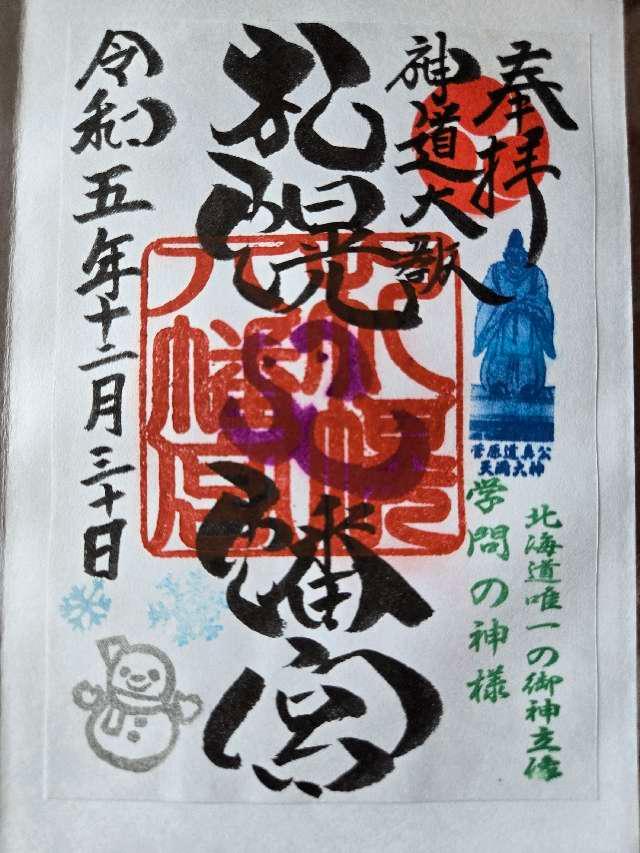 奉拝
神道大教
札幌八幡宮
令和五年十二月三十日
菅原道真公
天満大神
学問の神様
北海道唯一の御神立像